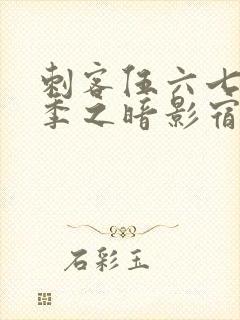 刺客伍六七
季之暗影宿
石彩玉